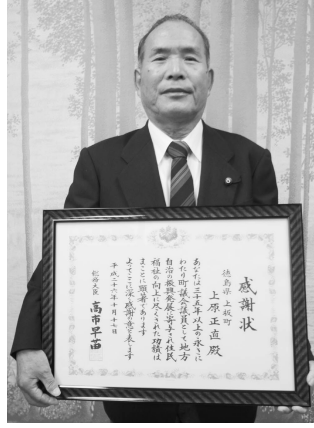 感謝状
徳島県 上板町
上原正直殿
あなたは三十五年以上の永きに
わたり町議会議員として地方
自治の振興発展に寄与され住民
福祉の向上に尽くされた功績は
まことに顕著であります
よってここに深く感謝の意を表します
平成二十六年十月十七日
総務大臣 高市早苗